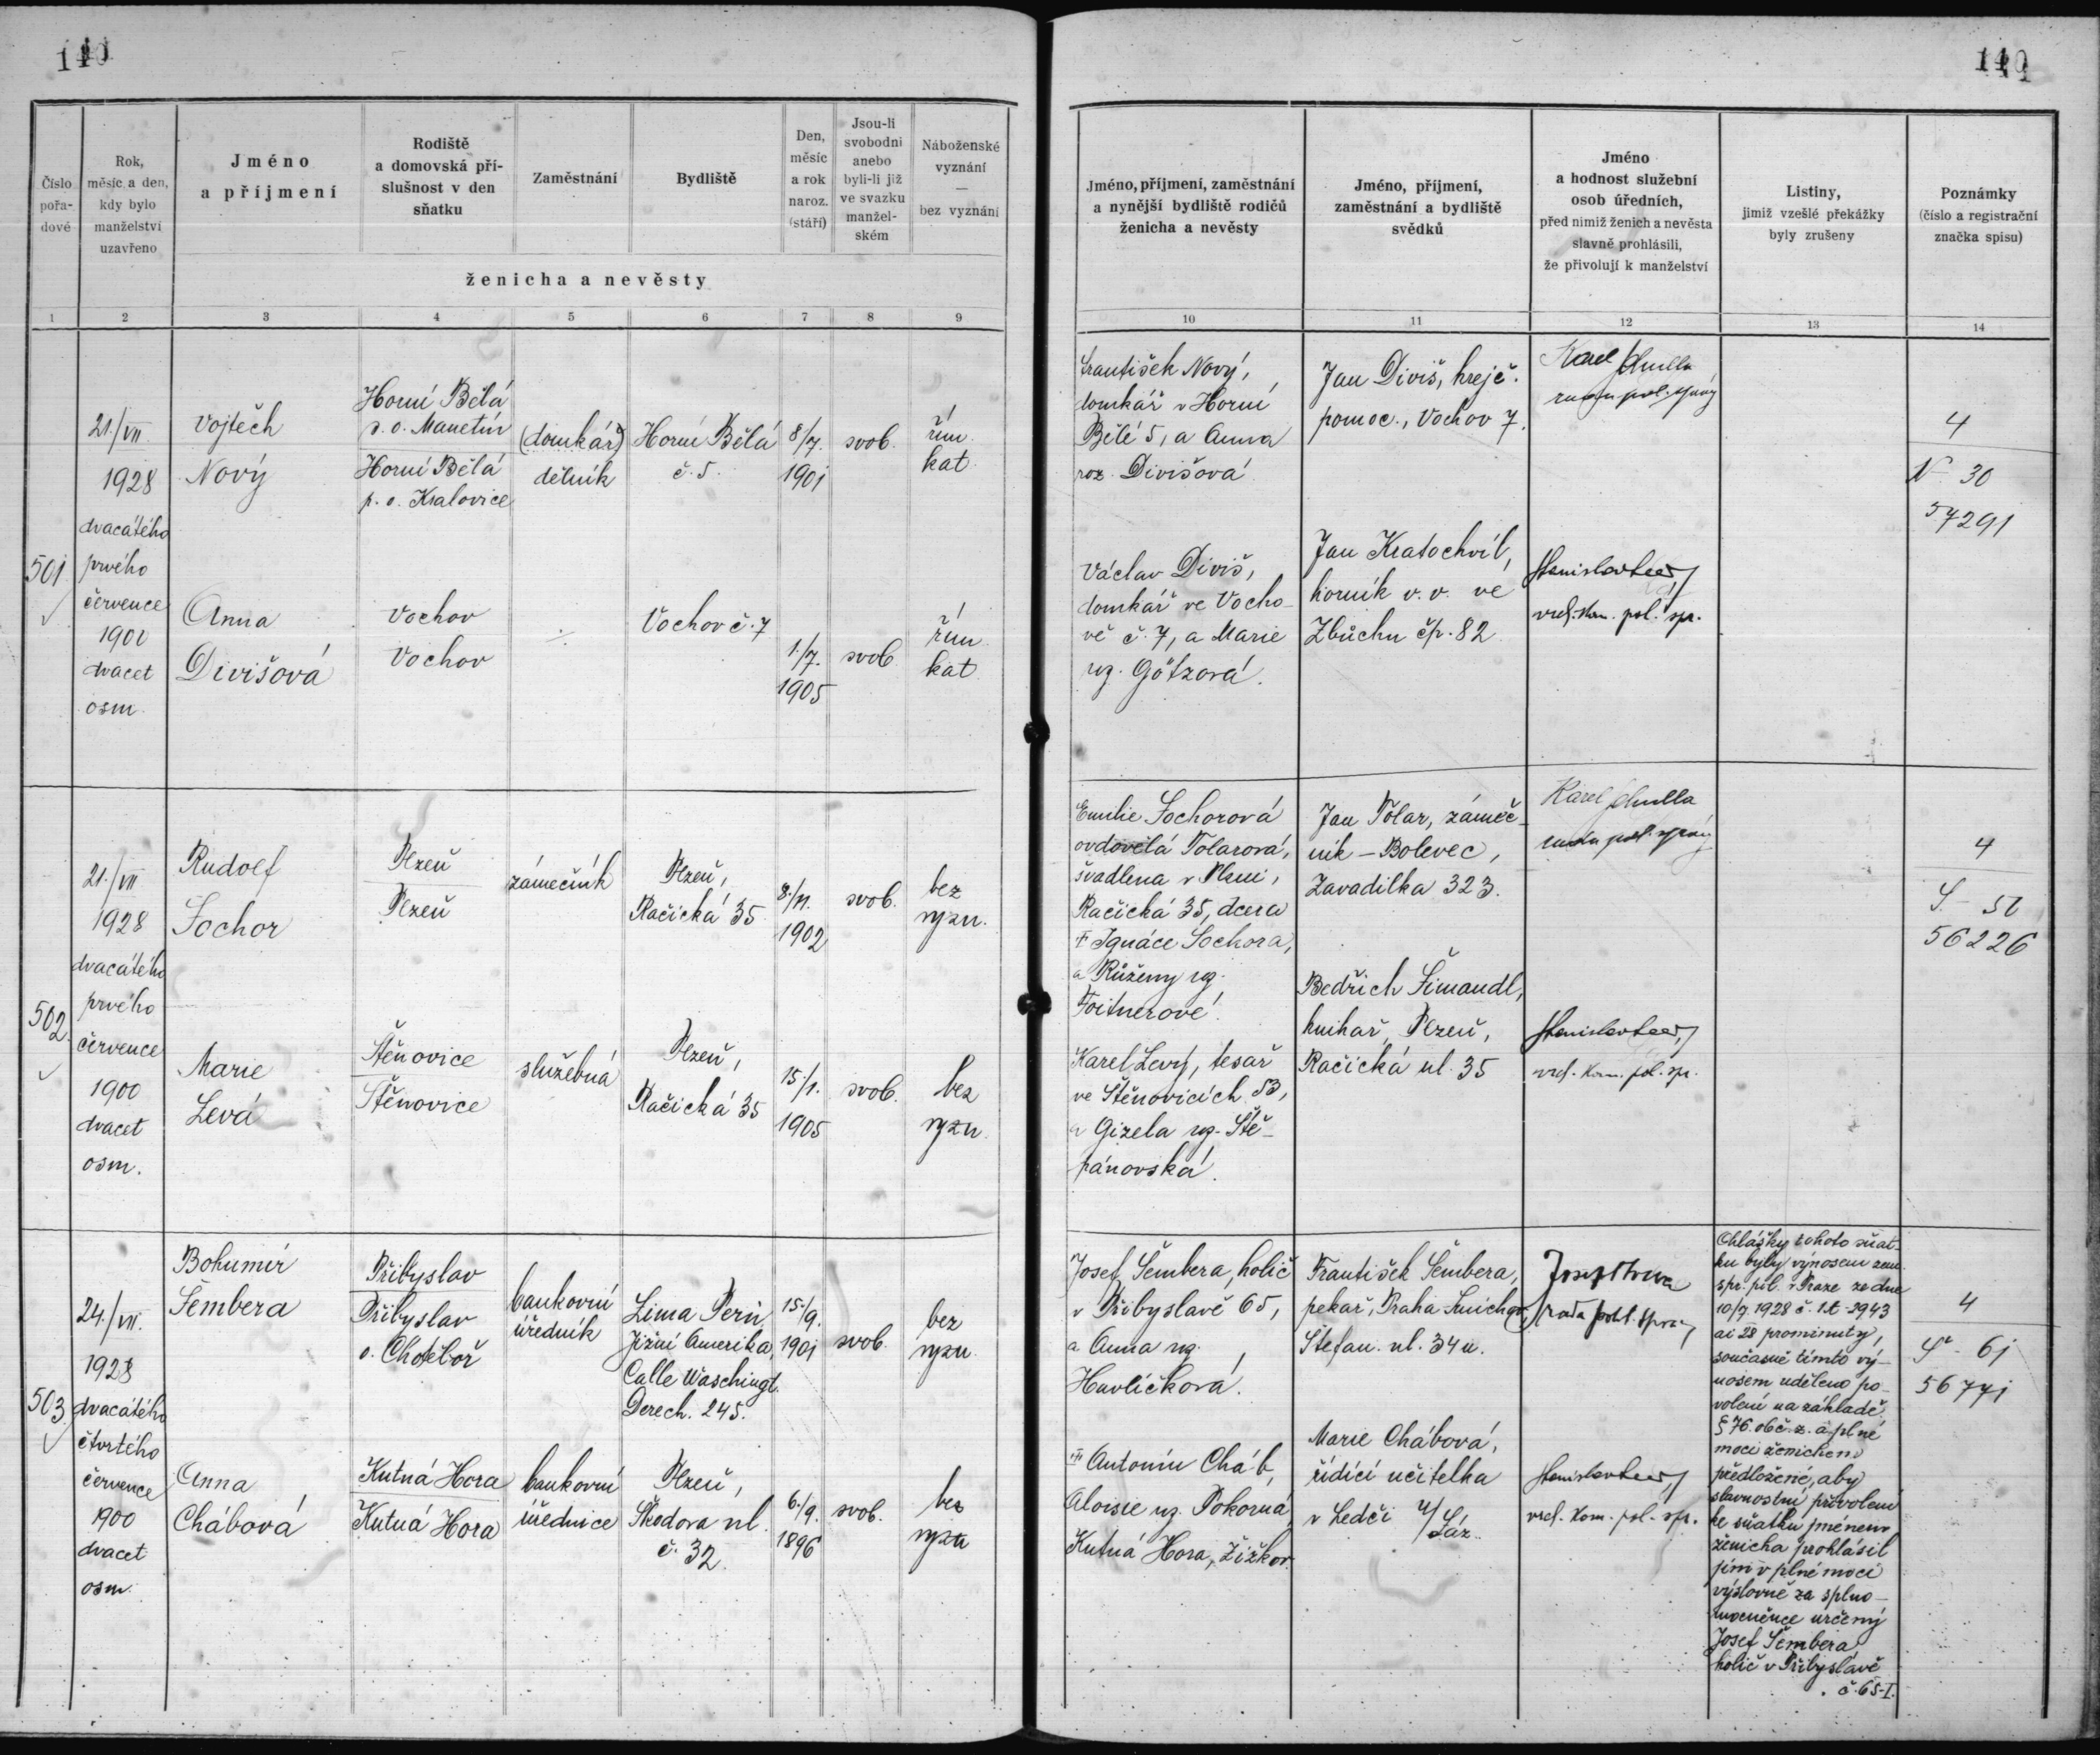 Číslo pořa-dové
Rok,
měsíc a den,
kdy bylo
manželství
uzavřeno
Jméno
a příjmení
Rodiště
a domovská pří-
slušnost v den
sňatku
Zaměstnání
Bydliště
Den,
měsíc
a rok
naroz.
(stáří)
Jsou-li
svobodni
anebo
byli-li již
ve svazku
manžel-
ském
Náboženské
vyznání
—
bez vyznání
ženicha a nevěsty
1 2 3 4 5 6 7 8 9
501
21./VII.
1928
dvacátého
prvého
července
1900
dvacet
osm.
Vojtěch
Nový
Horní Bělá
s. o. Manetín
Horní Bělá
p. o. Kralovice
(domkář)
dělník
Horní Bělá
č. 5.
8/7.
1901
svob.
řím.
kat.
Anna
Divišová
Vochov
Vochov
Vochov č. 7
1./7.
1905
svob.
řím.
kat.
502.
21./VII
1928
dvacátého
prvého
července
1900
dvacet
osm.
Rudolf
Sochor
Plzeň
Plzeň
zámečník
Plzeň,
Račická 35
1902
svob.
bez
vyzn.
Marie
Levá
Štěnovice
Štěnovice
služebná
Plzeň,
Račická 35
15./1.
1905
svob.
bez
vyzn.
503
24./VII.
1928
dvacátého
čtvrtého
července
1900
dvacet
osm.
Bohumír
Šembera
Přibyslav
Přibyslav
o. Chotěboř
bankovní
úředník
Lima Perú,
Jižní Amerika,
Calle Waschingt.
Derech. 245.
15./9.
1901
svob.
bez
vyzn.
Anna
Chábová
Kutná Hora
Kutná Hora
bankovní
úřednice
Plzeň,
Škodova ul.
č. 32.
6./9.
1896
svob.
bez
vyzn
Jméno, příjmení, zaměstnání
a nynější bydliště rodičů
ženicha a nevěsty
Jméno, příjmení,
zaměstnání a bydliště
svědků
Jméno
a hodnost služební
osob úředních,
před nimiž ženich a nevěsta
slavně prohlásili,
že přivolují k manželství
Listiny,
jimiž vzešlé překážky
byly zrušeny
Poznámky
(číslo a registrační
značka spisu)
10 11 12 13 14
František Nový,
domkář v Horní
Bělé 5, a Anna
roz. Divišová
Jan Diviš, krejč.
pomoc., Vochov 7.
Karel
rada pol. správy
4
N - 30
57291
Václav Diviš,
domkář ve Vocho-
vě č. 7, a Marie
roz. Götzová.
Jan Kratochvíl,
horník v. v. ve
Zbůchu čp. 82
Stanislav
vrch. kom. pol. spr.
Emilie Sochorová
ovdovělá Tolarová,
švadlena v Plzni,
Račická 35, dcera
† Ignáce Sochora,
a Růženy roz.
Foitnerové.
Jan Tolar, zámeč-
ník - Bolevec,
Zavadilka 323.
Karel
rada pol. správy
4
56226
Karel Levý, tesař
ve Štěnovicích 53,
a Gizela roz. Ště-
pánovská.
Bedřich Šimandl,
knihař, Plzeň,
Račická ul. 35
Stanislav
vrch. kom. pol. spr.
Josef Šembera, holič
v Přibyslavě 65,
a Anna roz.
Havlíčková.
František Šembera,
pekař, Praha Smíchov,
Štefan. ul. 34 n.
Josef
rada polit. správy
Ohlášky tohoto sňat-
ku byly výnosem zem.
spr. pol. v Praze ze dne
10/7 1928 č.
ai 28 prominuty,
současně tímto vý-
nosem uděleno po-
volení na základě
§ 76. obč. z. a plné
moci ženichem
předložené, aby
slavnostní přivolení
ke sňatku jménem
ženicha prohlásil
jím v plné moci
výslovně za splno-
mocněnce určený
Josef Šembera
holič v Přibyslavě
č. 65-I.
4
56771
Antonín Cháb,
Aloisie roz. Pokorná,
Kutná Hora, Žižkov.
Marie Chábová,
řídící učitelka
v Ledči n/Sáz.
Stanislav
vrch. kom. pol. spr.